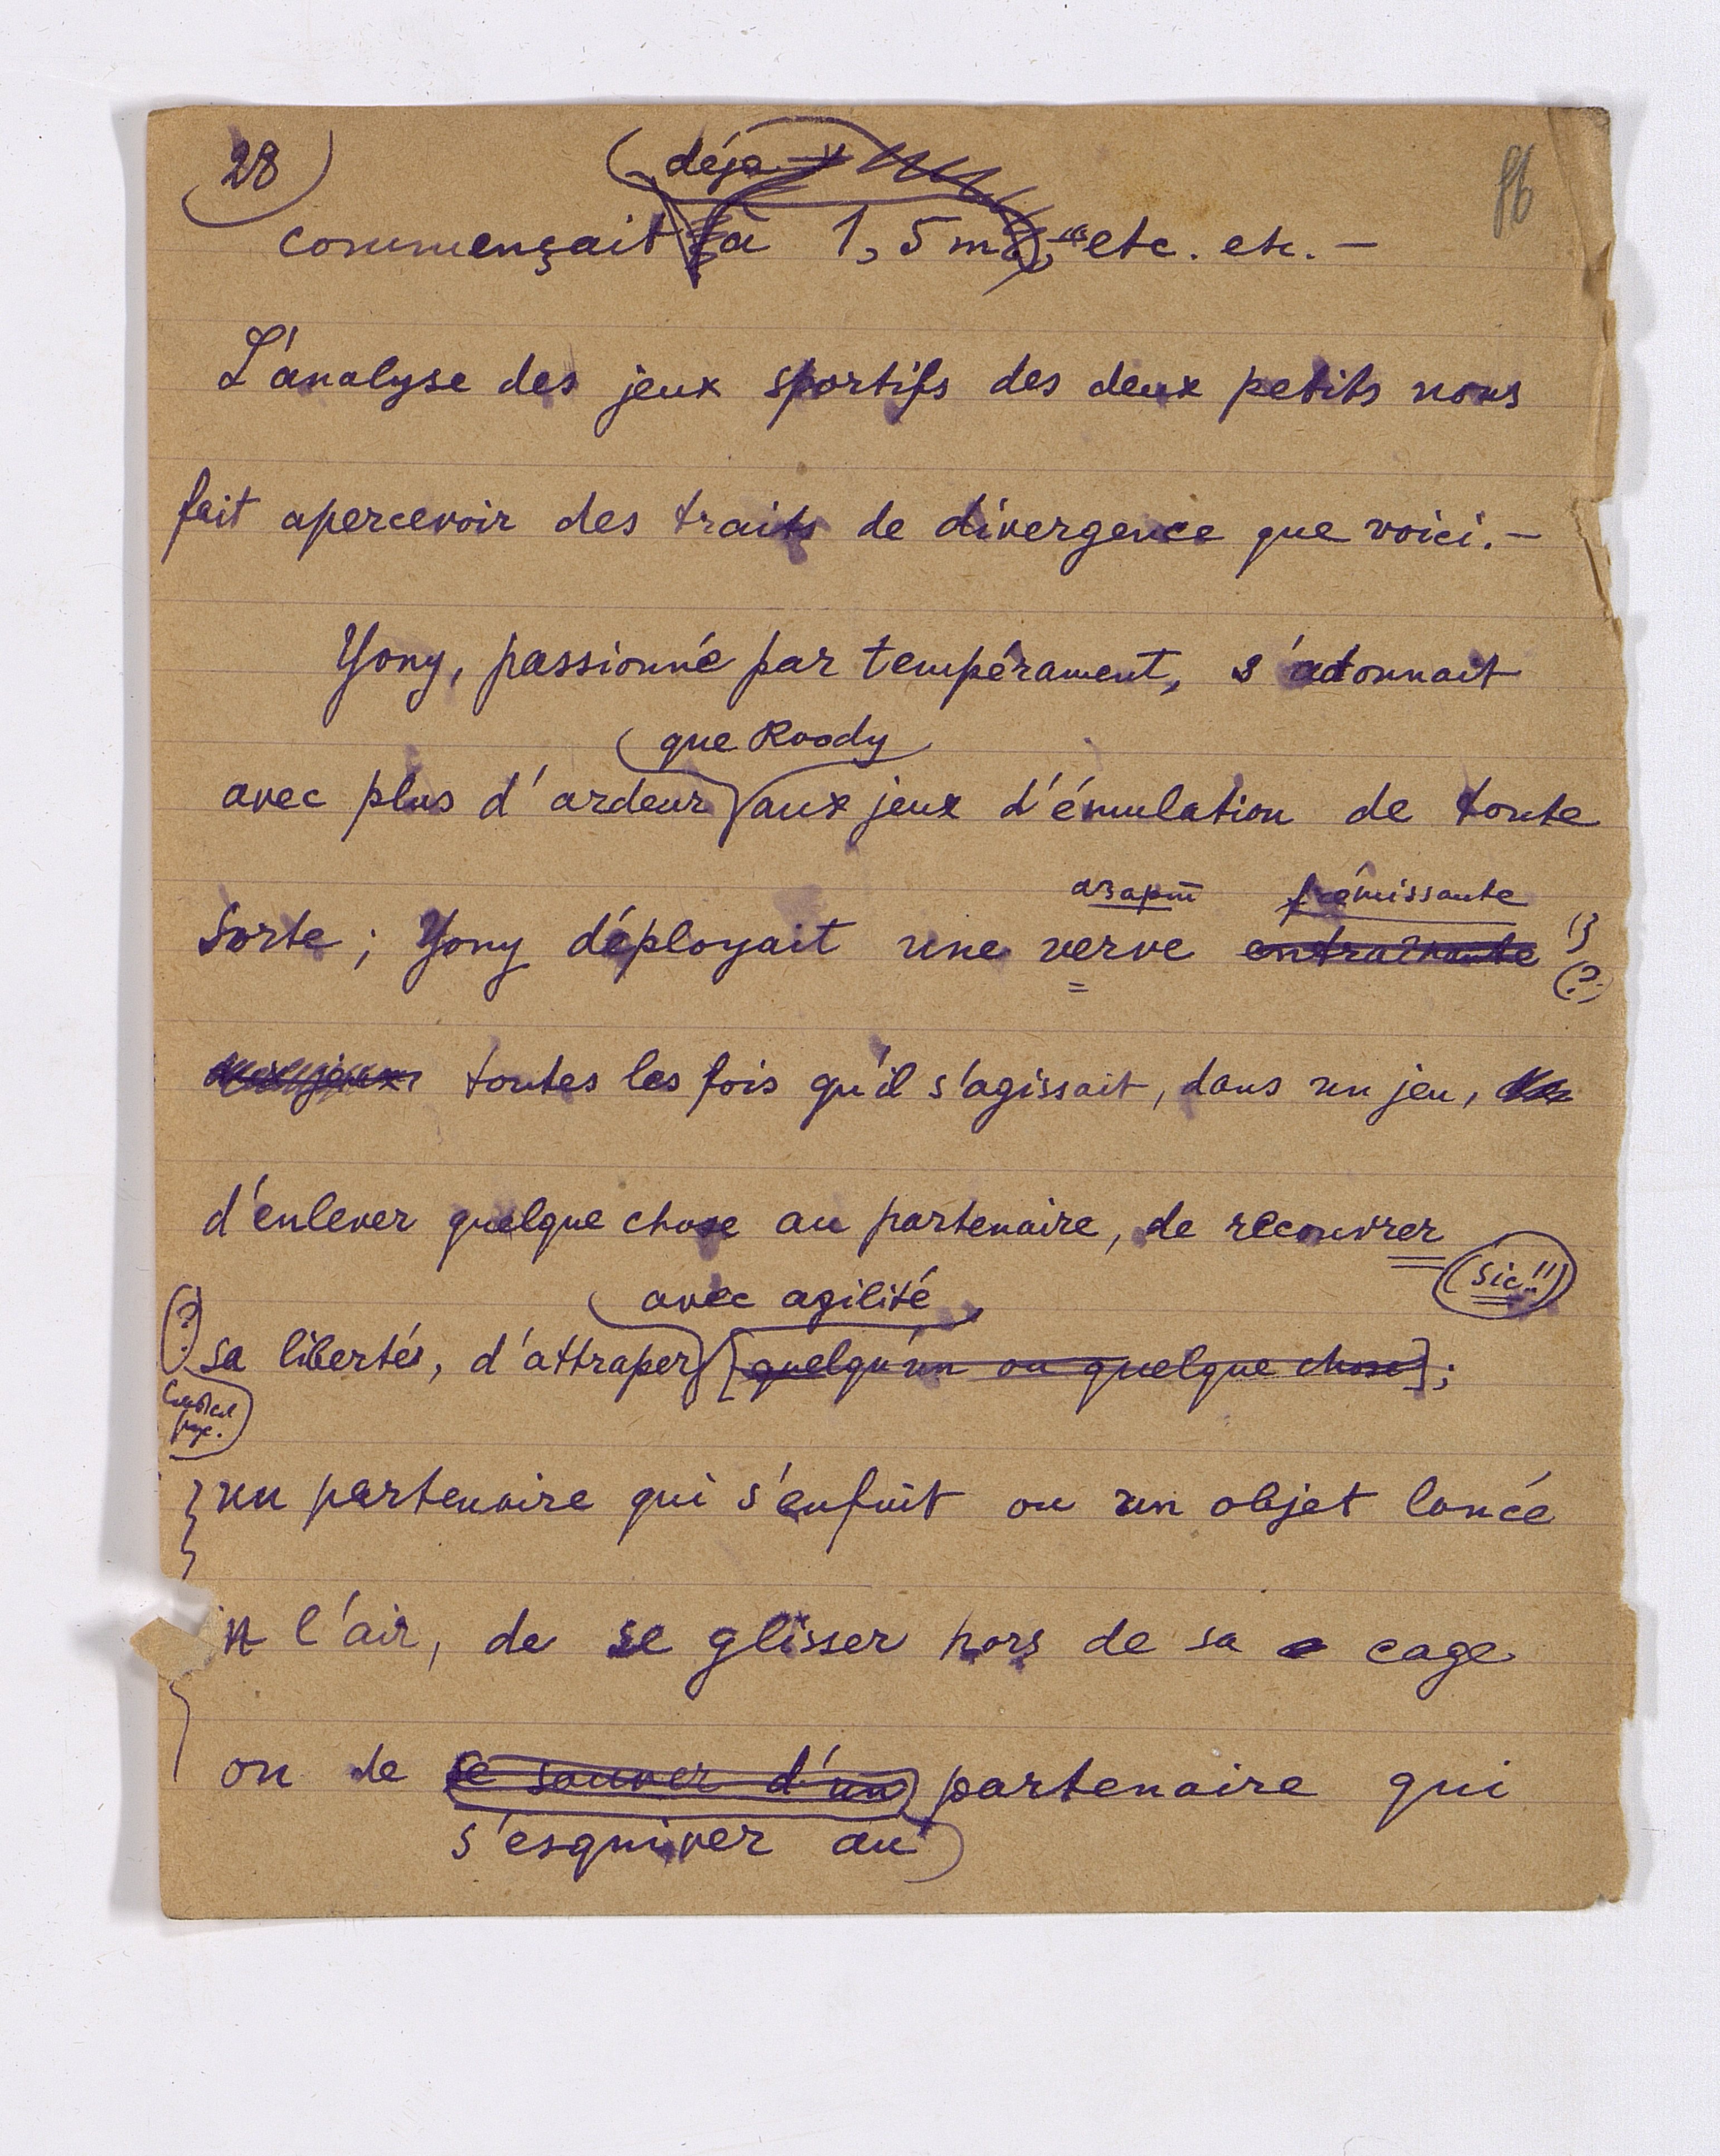 28
86
déjà
commençait à 1,5 m etc. etc. —
L'analyse des jeux sportifs des deux petits nous
fait apercevoir des traits de divergence que voici. —
Yony, passionné par tempérament, s'adonnait
que Roody
avec plus d'ardeur aux jeux d'émulation de toute
азарт frémissante
sorte ; Yony déployait une verve entrainante
(?)
toutes les fois qu'il s'agissait, dans un jeu,
d'enlever quelque chose au partenaire, de recouvrer
(sic!!)
avec agilité
(?) sa libertés, d'attraper [quelqu'un ou quelque chose];
un partenaire qui s'enfuit ou un objet lancé
n l'air, de se glisser hors de sa cage
ou de se sauver d'un partenaire qui
s'esquiver au